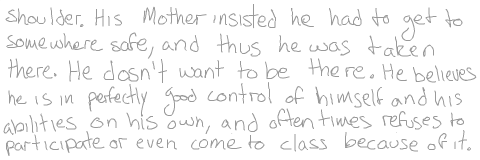 shoulder. His Mother insisted he had to get to
somewhere safe, and thus he was taken
there. He dosn't want to be there. He believes
he is in perfectly good control of himself and his
abilities on his own, and often times refuses to
participate or even come to class because of it.